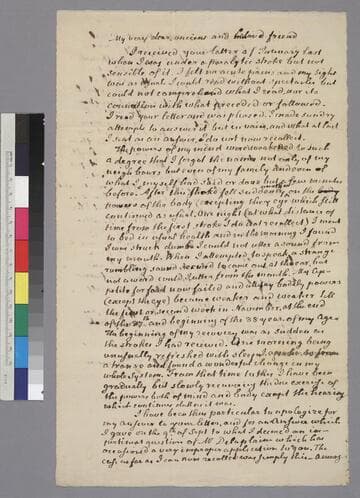 My very dear, ancient and beloved friend
I received your letter of January last
when I was under a paralytic stroke but not
sensible of it. I felt no acute pains and my sight
was as usual I could read without spectacles but
could not comprehend what I read, nor its
connection with what preceded or followed.
I read your letter and was pleased. I made sundry
attempts to answer it but in vain, and what at last
I sent as an answer, I do not now recollect.
The powers of my mind were weakened to such
a degree that I forgot the names not only of my
neighbours but even of my family and even of
what I myself had said or done but a few minutes
before. After this stroke fell suddenly on the
powers of the body (excepting the eye which still
continued as usual. One night (at what distance of
time from the first stroke I do not recollect) I went
to bed in usual health and in the morning I found
I was struck dumb I could not utter a sound from
my mouth. When I attempted to speak a strange
rumbling sound seemed to come out at the ear, but
not a word could I utter from the mouth. My appetite
for food now failed and all my bodily powers
(except the eye) became weaker and weaker till
the first or second week in November, at the end
of the 87th and beginning of the 88 year of my age
The beginning of my recovery was as sudden as
the strokes I had received. One morning being
unusually refreshed with sleep I
a trance and found a wonderful change in my
whole system. From that time to this I have been
gradually but slowly recovering the due exercise of
the powers both of mind and body except the hearing
which continues
I have been thus particular to apologize for
my answer to your letter, and for
I gave on the 9th of Sept to what I deemed an im-
pertinent question of Mr Delaplaine which has
occasioned a very improper application to you. The
case as far as I can now recollect was simply this.